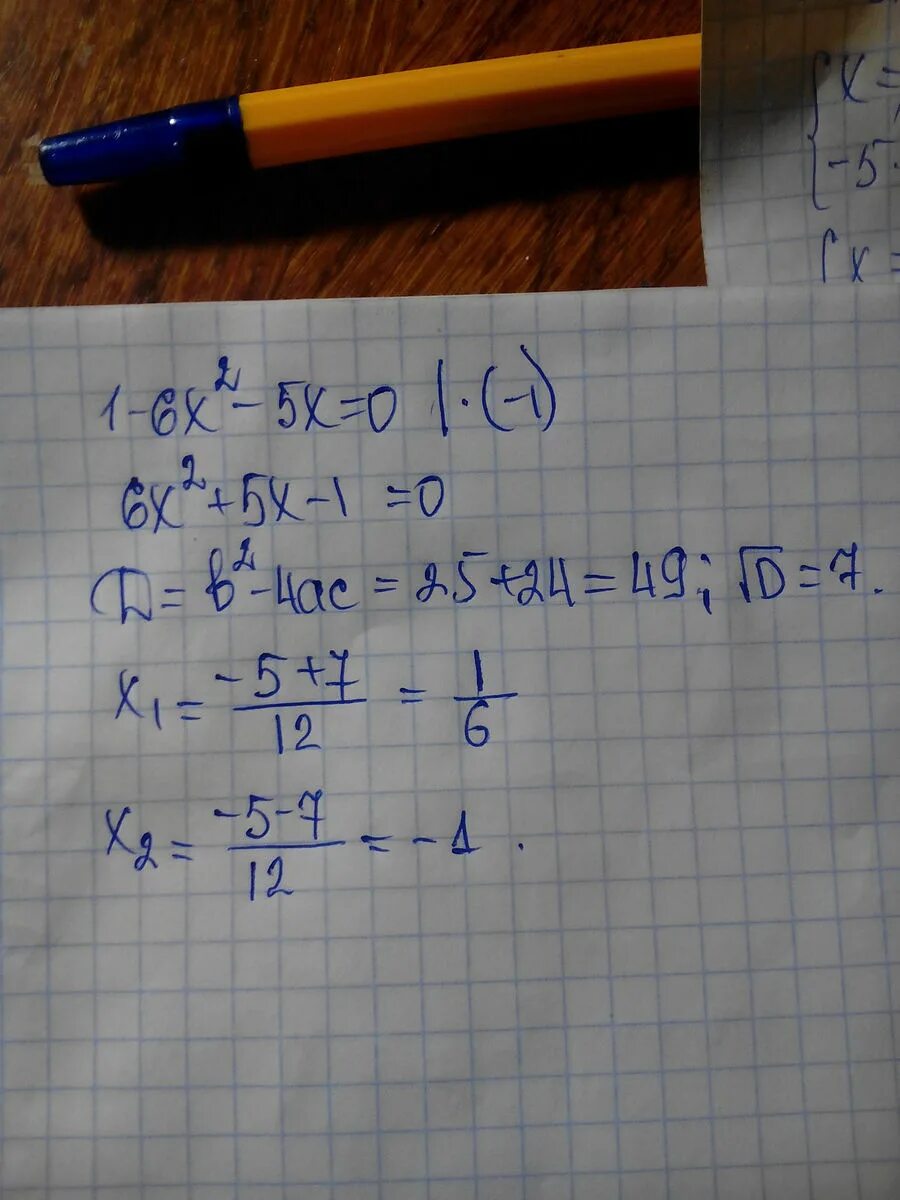 { x =
-5 ·
{ x =
1 - 6x² - 5x = 0 | · (-1)
6x² + 5x - 1 = 0
D = b² - 4ac = 25 + 24 = 49; √D = 7.
x₁ = (-5+7)/12 = 1/6
x₂ = (-5-7)/12 = -1.